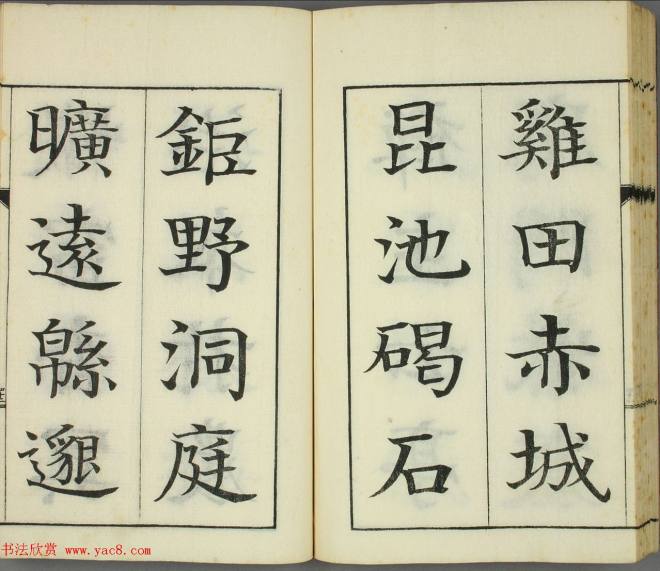 雞田赤城
昆池碣石
鉅野洞庭
曠遠緜邈
书法欣赏 www.yac8.com